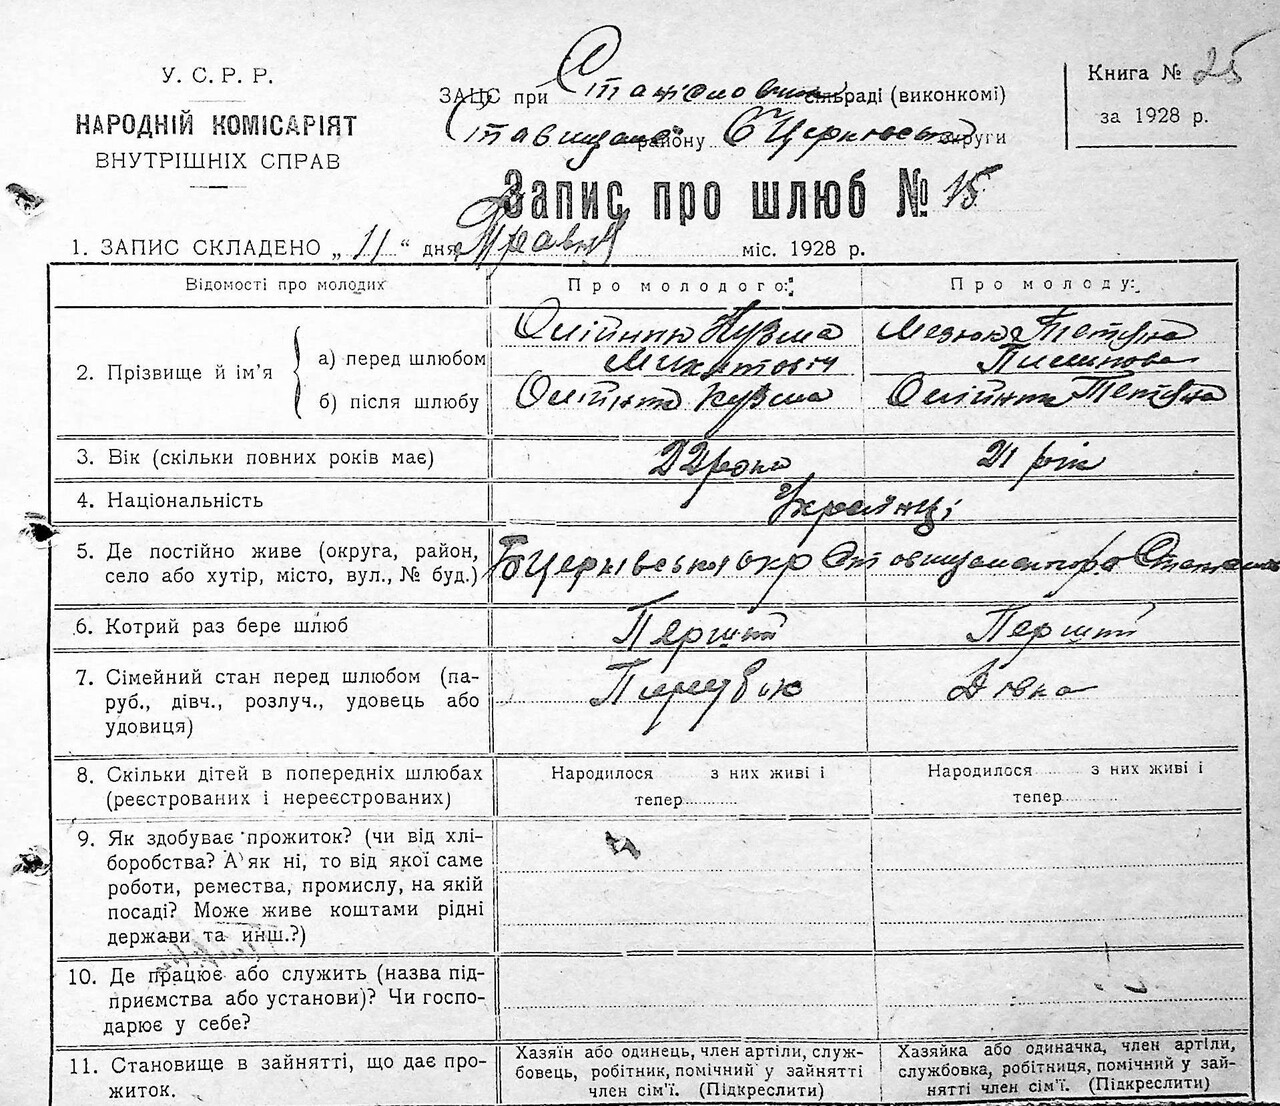 У. С. Р. Р.
НАРОДНІЙ КОМІСАРІЯТ
ВНУТРІШНІХ СПРАВ
ЗАЦС при сільраді (виконкомі)
району Б Церківської округи
Книга № 25
за 1928 р.
Запис про шлюб № 15
1. ЗАПИС СКЛАДЕНО „ 11 “ дня Травня міс. 1928 р.
Відомості про молодих
Про молодого:
Про молоду:
2. Прізвище й ім’я
а) перед шлюбом
Олійник Кузма
Микитович
Тетяна
б) після шлюбу
Кузма
Тетяна
3. Вік (скільки повних років має)
22 роки
21 рік
4. Національність
Українці
5. Де постійно живе (округа, район,
село або хутір, місто, вул., № буд.)
БЦерківська окр
6. Котрий раз бере шлюб
Перший
Перший
7. Сімейний стан перед шлюбом (па-
руб., дівч., розлуч., удовець або
удовиця)
Дівка
8. Скільки дітей в попередніх шлюбах
(реєстрованих і нереєстрованих)
Народилося з них живі і
тепер
Народилося з них живі і
тепер
9. Як здобуває прожиток? (чи від хлі-
боробства? А як ні, то від якої саме
роботи, ремества, промислу, на якій
посаді? Може живе коштами рідні
держави та инш.?)
10. Де працює або служить (назва під-
приємства або установи)? Чи госпо-
дарює у себе?
11. Становище в зайнятті, що дає про-
житок.
Хазяїн або одинець, член артіли, служ-
бовець, робітник, помічний у зайнятті
член сім’ї. (Підкреслити)
Хазяйка або одиначка, член артіли,
службовка, робітниця, помічний у зай-
нятті член сім’ї. (Підкреслити)